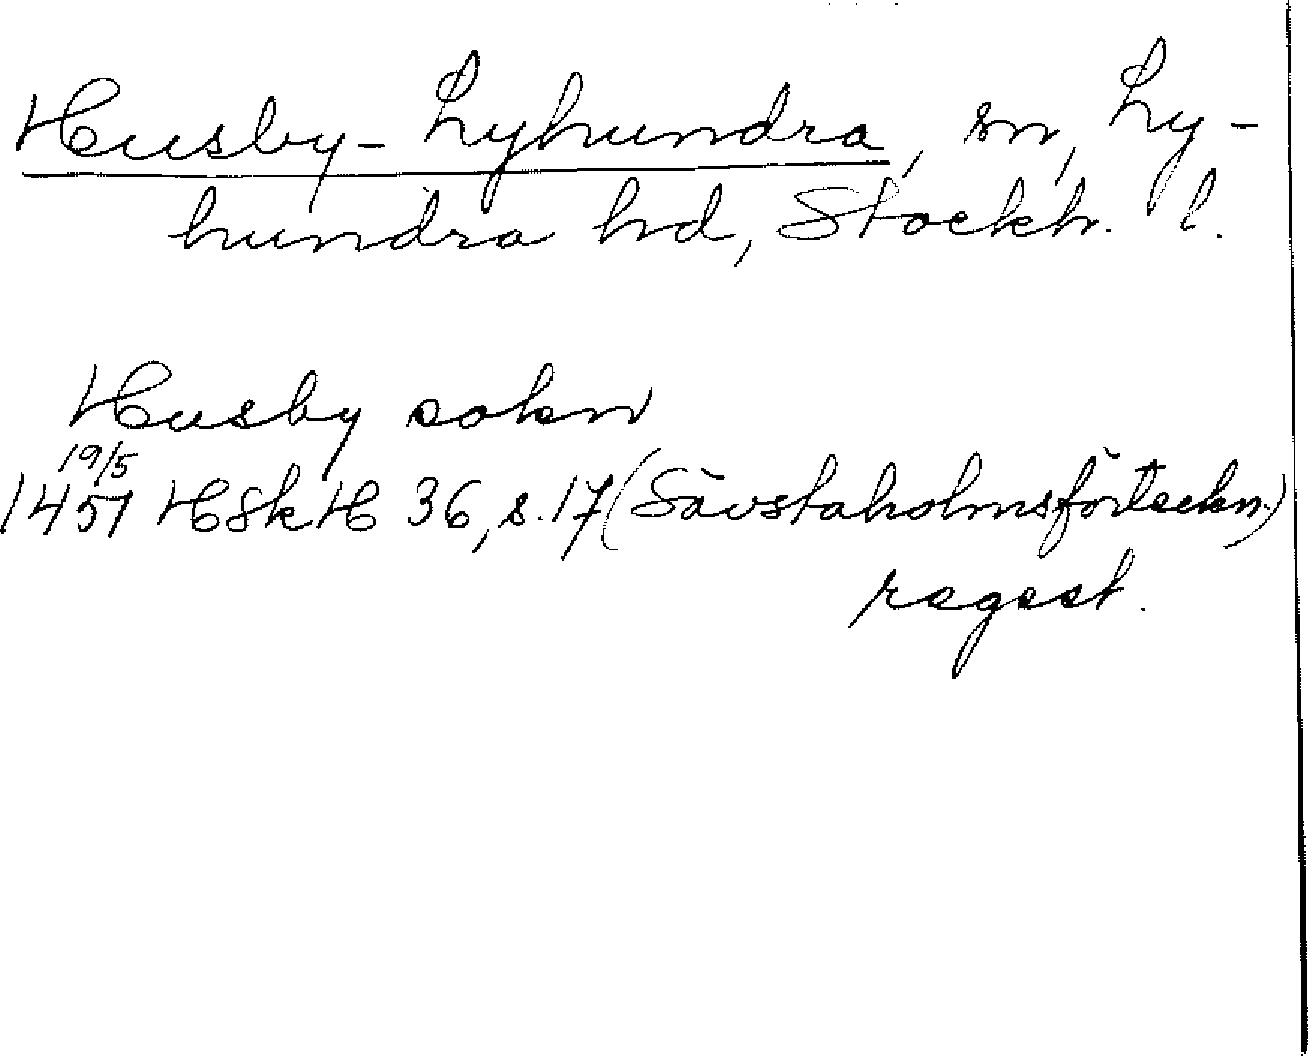 Husby-Lyhundra, sn, Ly-
hundra hd, Stockh. l.
Husby sokn
19/5
1457 HSkH 36, s. 17 (Sävstaholmsförteckn.)
regest.